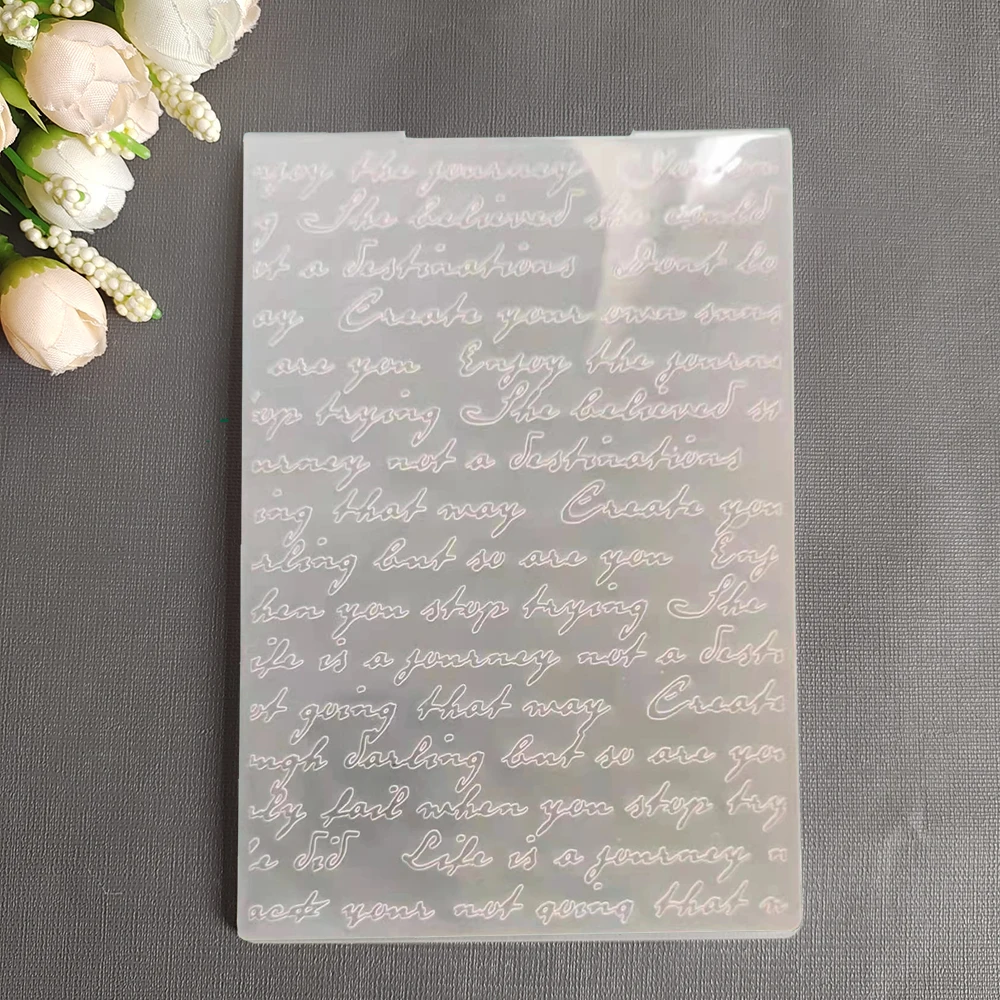 njoy the journey You on
g She believed she could
ot a destinations Dont lo
ay Create your own suns
are you Enjoy the journe
op trying She believed s
urney not a destinations
ing that way Create you
rling but so are you Enj
hen you stop trying She
ife is a journey not a desti
ot going that way Create
ugh darling but so are you
ly fail when you stop try
e did Life is a journey n
ack your not going that w